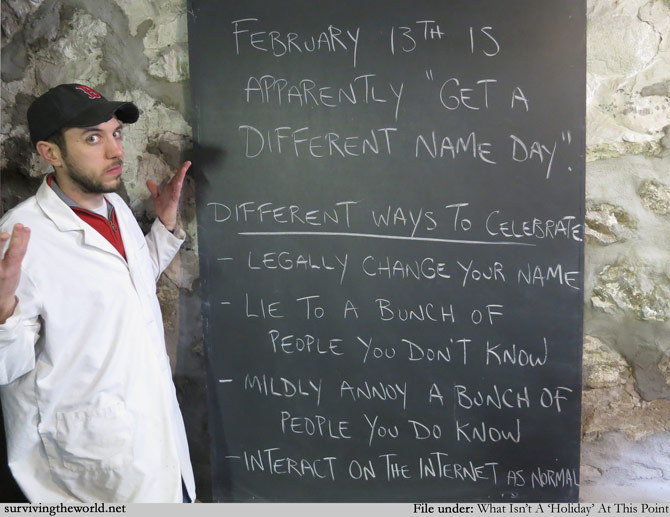 FEBRUARY 13TH IS
APPARENTLY "GET A
DIFFERENT NAME DAY".
DIFFERENT WAYS TO CELEBRATE
- LEGALLY CHANGE YOUR NAME
- LIE TO A BUNCH OF
PEOPLE YOU DON'T KNOW
- MILDLY ANNOY A BUNCH OF
PEOPLE YOU DO KNOW
- INTERACT ON THE INTERNET AS NORMAL
survivingtheworld.net
File under: What Isn't A 'Holiday' At This Point